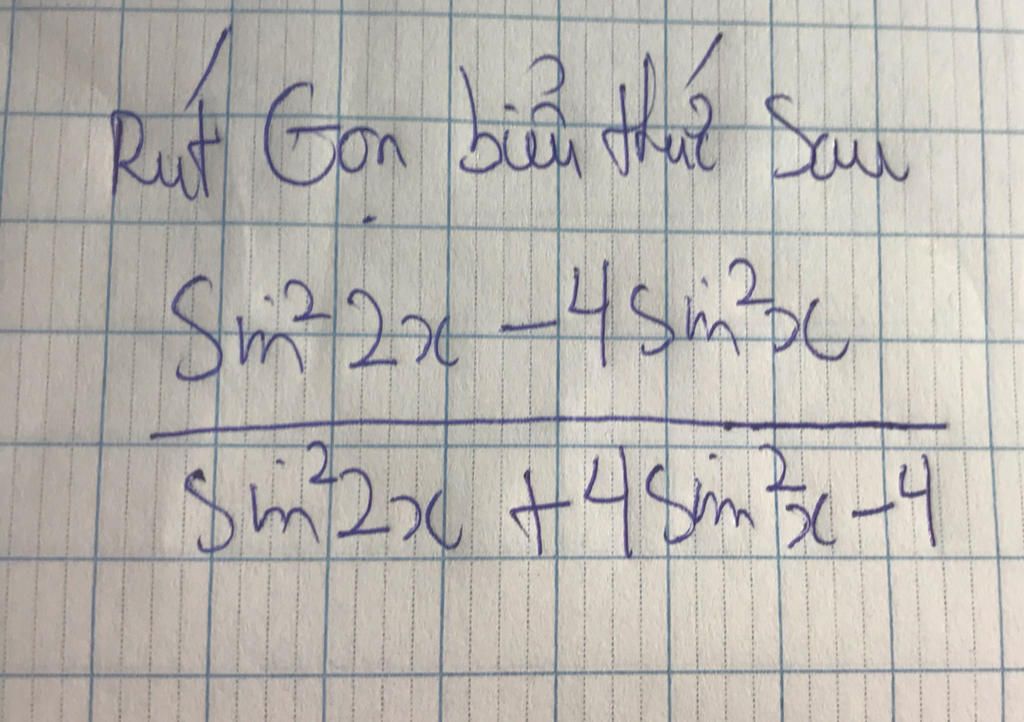 Rút Gọn biểu thức Sau
Sin² 2x - 4 Sin² x
Sin² 2x + 4 Sin² x - 4